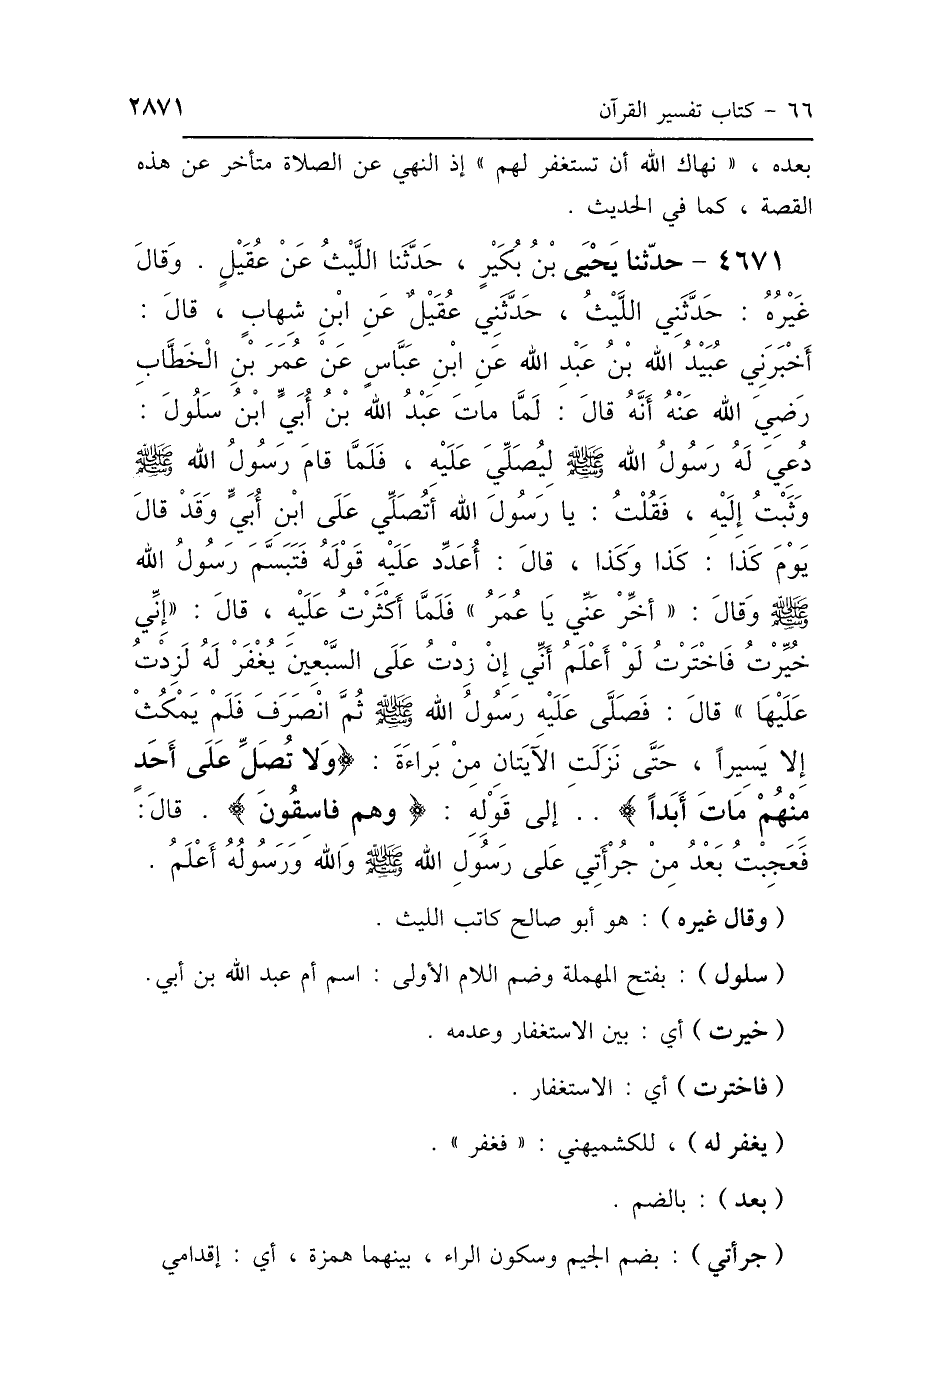 ٦٦ - كتاب تفسير القرآن ٢٨٧١
بعده ، « نهاك الله أن تستغفر لهم » إذ النهي عن الصلاة متأخر عن هذه
القصة ، كما في الحديث .
٤٦٧١ - حدّثنا يَحْيَى بْنُ بُكَيْرٍ ، حَدَّثَنَا اللَّيْثُ عَنْ عُقَيْلٍ . وَقالَ
غَيْرُهُ : حَدَّثَنِي اللَّيْثُ ، حَدَّثَنِي عُقَيْلٌ عَنِ ابْنِ شِهابٍ ، قالَ :
أَخْبَرَنِي عُبَيْدُ الله بْنُ عَبْدِ الله عَنِ ابْنِ عَبَّاسٍ عَنْ عُمَرَ بْنِ الْخَطَّابِ
رَضِيَ الله عَنْهُ أَنَّهُ قالَ : لَمَّا ماتَ عَبْدُ الله بْنُ أُبَيٍّ ابْنُ سَلُولَ :
دُعِيَ لَهُ رَسُولُ الله ﷺ لِيُصَلِّيَ عَلَيْهِ ، فَلَمَّا قامَ رَسُولُ الله ﷺ
وَثَبْتُ إِلَيْهِ ، فَقُلْتُ : يا رَسُولَ الله أَتُصَلِّي عَلَى ابْنِ أُبَيٍّ وَقَدْ قالَ
يَوْمَ كَذا : كَذا وَكَذا ، قالَ : أُعَدِّد عَلَيْهِ قَوْلَهُ فَتَبَسَّمَ رَسُولُ الله
ﷺ وَقالَ : « أَخِّرْ عَنِّي يَا عُمَرُ » فَلَمَّا أَكْثَرْتُ عَلَيْهِ ، قالَ : «إِنِّي
خُيِّرْتُ فَاخْتَرْتُ لَوْ أَعْلَمُ أَنِّي إِنْ زِدْتُ عَلَى السَّبْعِينَ يُغْفَرْ لَهُ لَزِدْتُ
عَلَيْهَا » قالَ : فَصَلَّى عَلَيْهِ رَسُولُ الله ﷺ ثُمَّ انْصَرَفَ فَلَمْ يَمْكُثْ
إلا يَسِيراً ، حَتَّى نَزَلَتِ الآيَتَانِ مِنْ بَرَاءَةَ : ﴿وَلا تُصَلِّ عَلَى أَحَدٍ
مِنْهُمْ مَاتَ أَبَداً ﴾ . . إلى قَوْلِهِ : ﴿ وهم فاسقُونَ ﴾ . قالَ:
فَعَجِبْتُ بَعْدُ مِنْ جُرْأَتِي عَلى رَسُولِ الله ﷺ وَالله وَرَسُولُهُ أَعْلَمُ .
( وقال غيره ) : هو أبو صالح كاتب الليث .
( سلول ) : بفتح المهملة وضم اللام الأولى : اسم أم عبد الله بن أبي.
( خيرت ) أي : بين الاستغفار وعدمه .
( فاخترت ) أي : الاستغفار .
( يغفر له ) ، للكشميهني : « فغفر » .
( بعد ) : بالضم .
( جرأتي ) : بضم الجيم وسكون الراء ، بينهما همزة ، أي : إقدامي